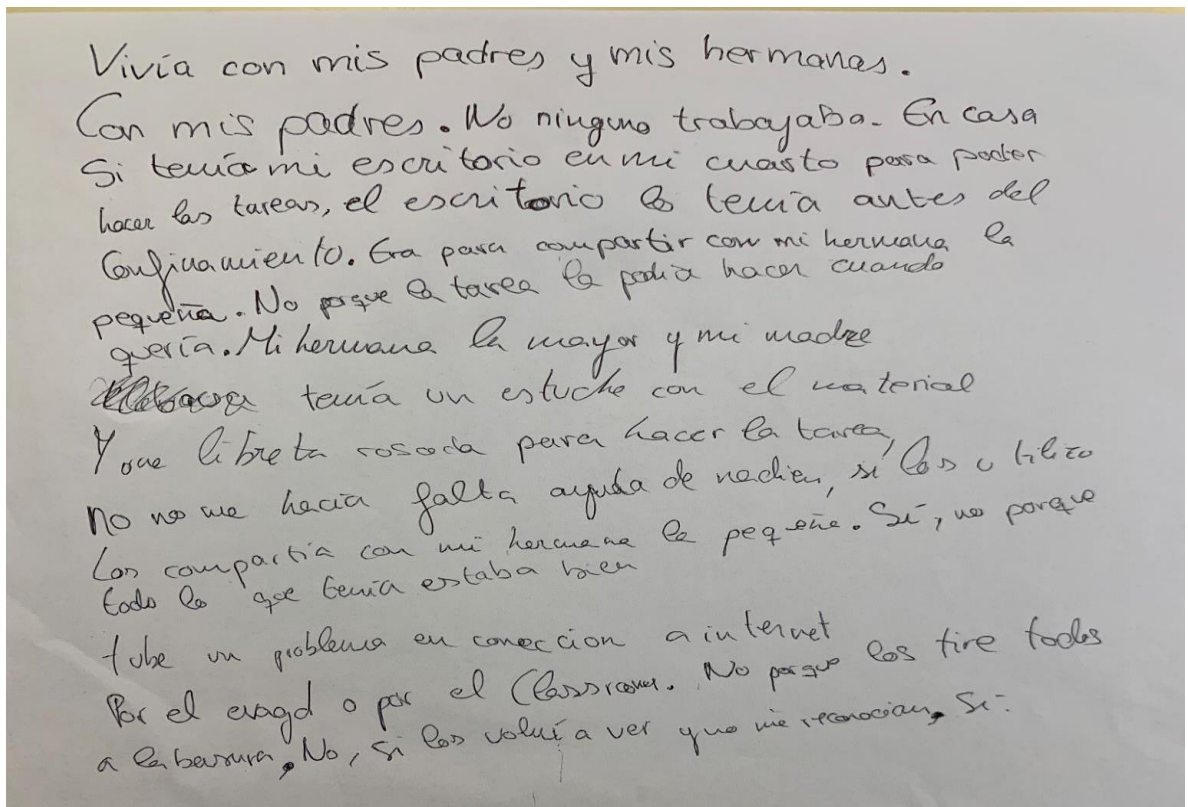 Vivía con mis padres y mis hermanas.
Con mis padres. No ninguno trabajaba. En casa
Si tenía mi escritorio en mi cuarto para poder
hacer las tareas, el escritorio lo tenía antes del
Confinamiento. Era para compartir con mi hermana la
pequeña. No porque la tarea la podia hacer cuando
quería. Mi hermana la mayor y mi madre
tenía un estuche con el material
Y una libreta rosada para hacer la tarea,
No no me hacia falta ayuda de nadien, si los utilizo
Los compartía con mi hermana la pequeña. Sí, no porque
todo lo que tenía estaba bien
tube un problema en coneccion a internet
Por el o por el Classroom. No porque los tire todos
a la basura, No, si los volví a ver y no me reconocian, Si.